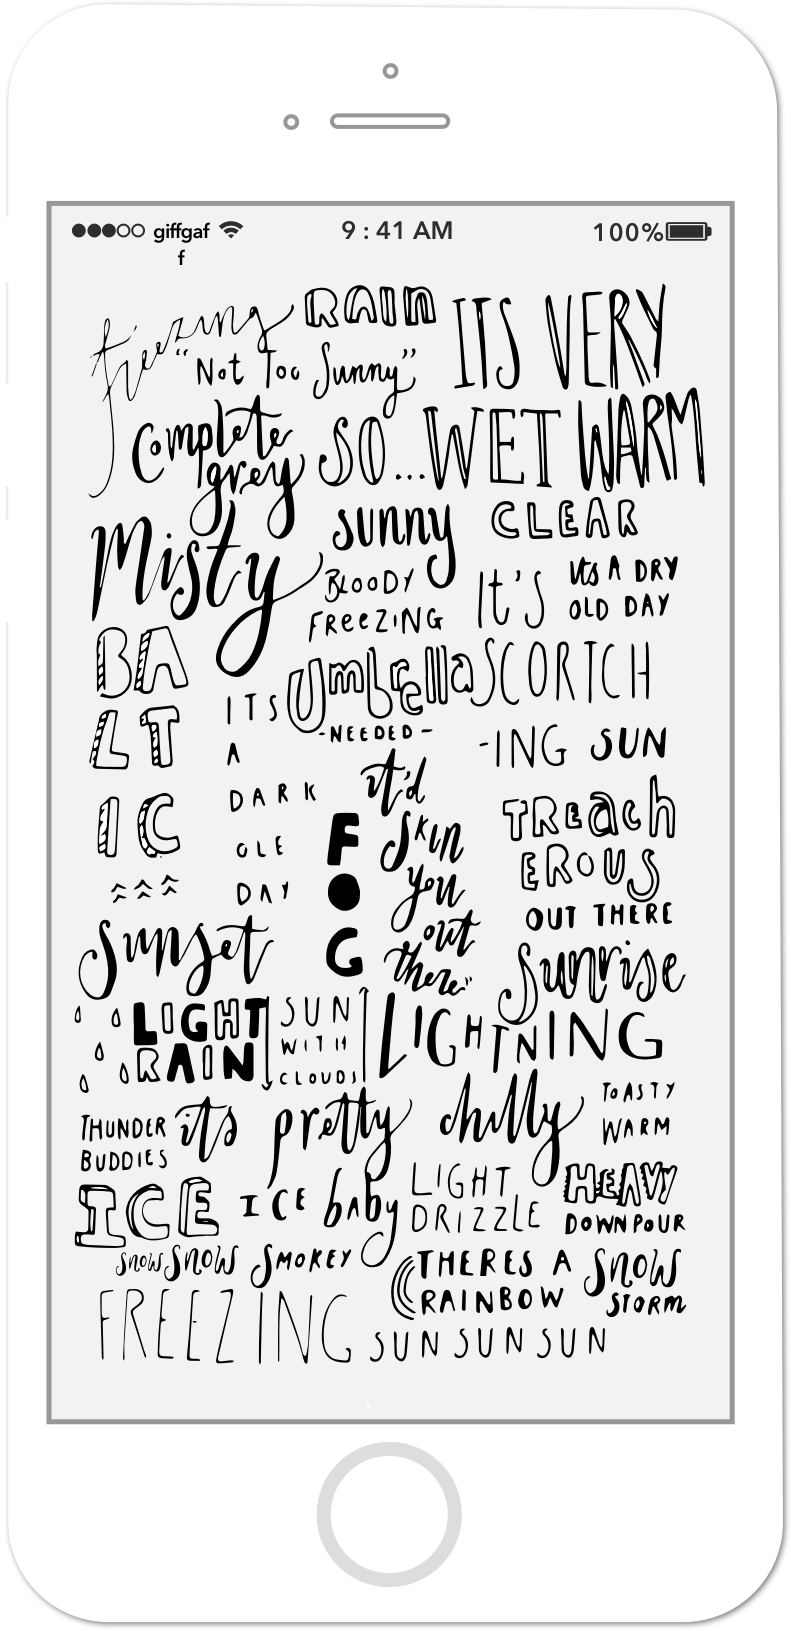 giffgaf
f
9:41 AM
100%
freezing RAIN
"Not Too Sunny"
ITS VERY
Complete
grey
SO...WET WARM
Misty
sunny
CLEAR
BLOODY
FREEZING
It's
Its A DRY
OLD DAY
BA
LT
IC
ITS
A
DARK
OLE
DAY
Umbrella
-NEEDED-
SCORTCH
-ING SUN
it'd
skin
you
out
there"
F
O
G
TREach
EROUS
OUT THERE
Sunset
Sunrise
LIGHT
RAIN
SUN
WITH
CLOUDS
LIGHTNING
THUNDER
BUDDIES
its pretty chilly
TOASTY
WARM
ICE
ICE baby
LIGHT
DRIZZLE
HEAVY
DOWNPOUR
SNOW SNOW SMOKEY
THERES A
RAINBOW
SNOW
STORM
FREEZING
SUN SUN SUN